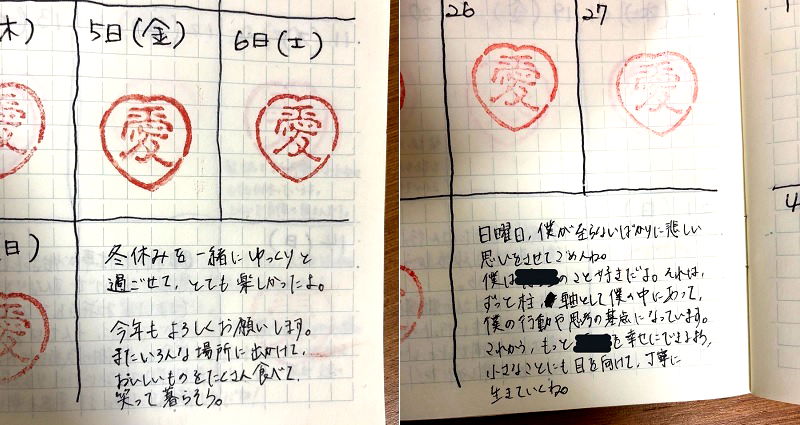 木)
5日(金)
6日(土)
愛
愛
愛
日)
冬休みを一緒にゆっくりと
過ごせて、とても楽しかったよ。
今年もよろしくお願いします。
またいろんな場所に出かけて、
おいしいものをたくさん食べて、
笑って暮らそう。
26
27
愛
愛
日曜日、僕が至らないばかりに悲しい
思いをさせてごめんね。
僕は のこと好きだよ。それは、
ずっと柱、軸として僕の中にあって、
僕の行動や思考の基点になっています。
これから、もっと を幸せにできるよう、
小さなことにも目を向けて、丁寧に
生きていくね。
4